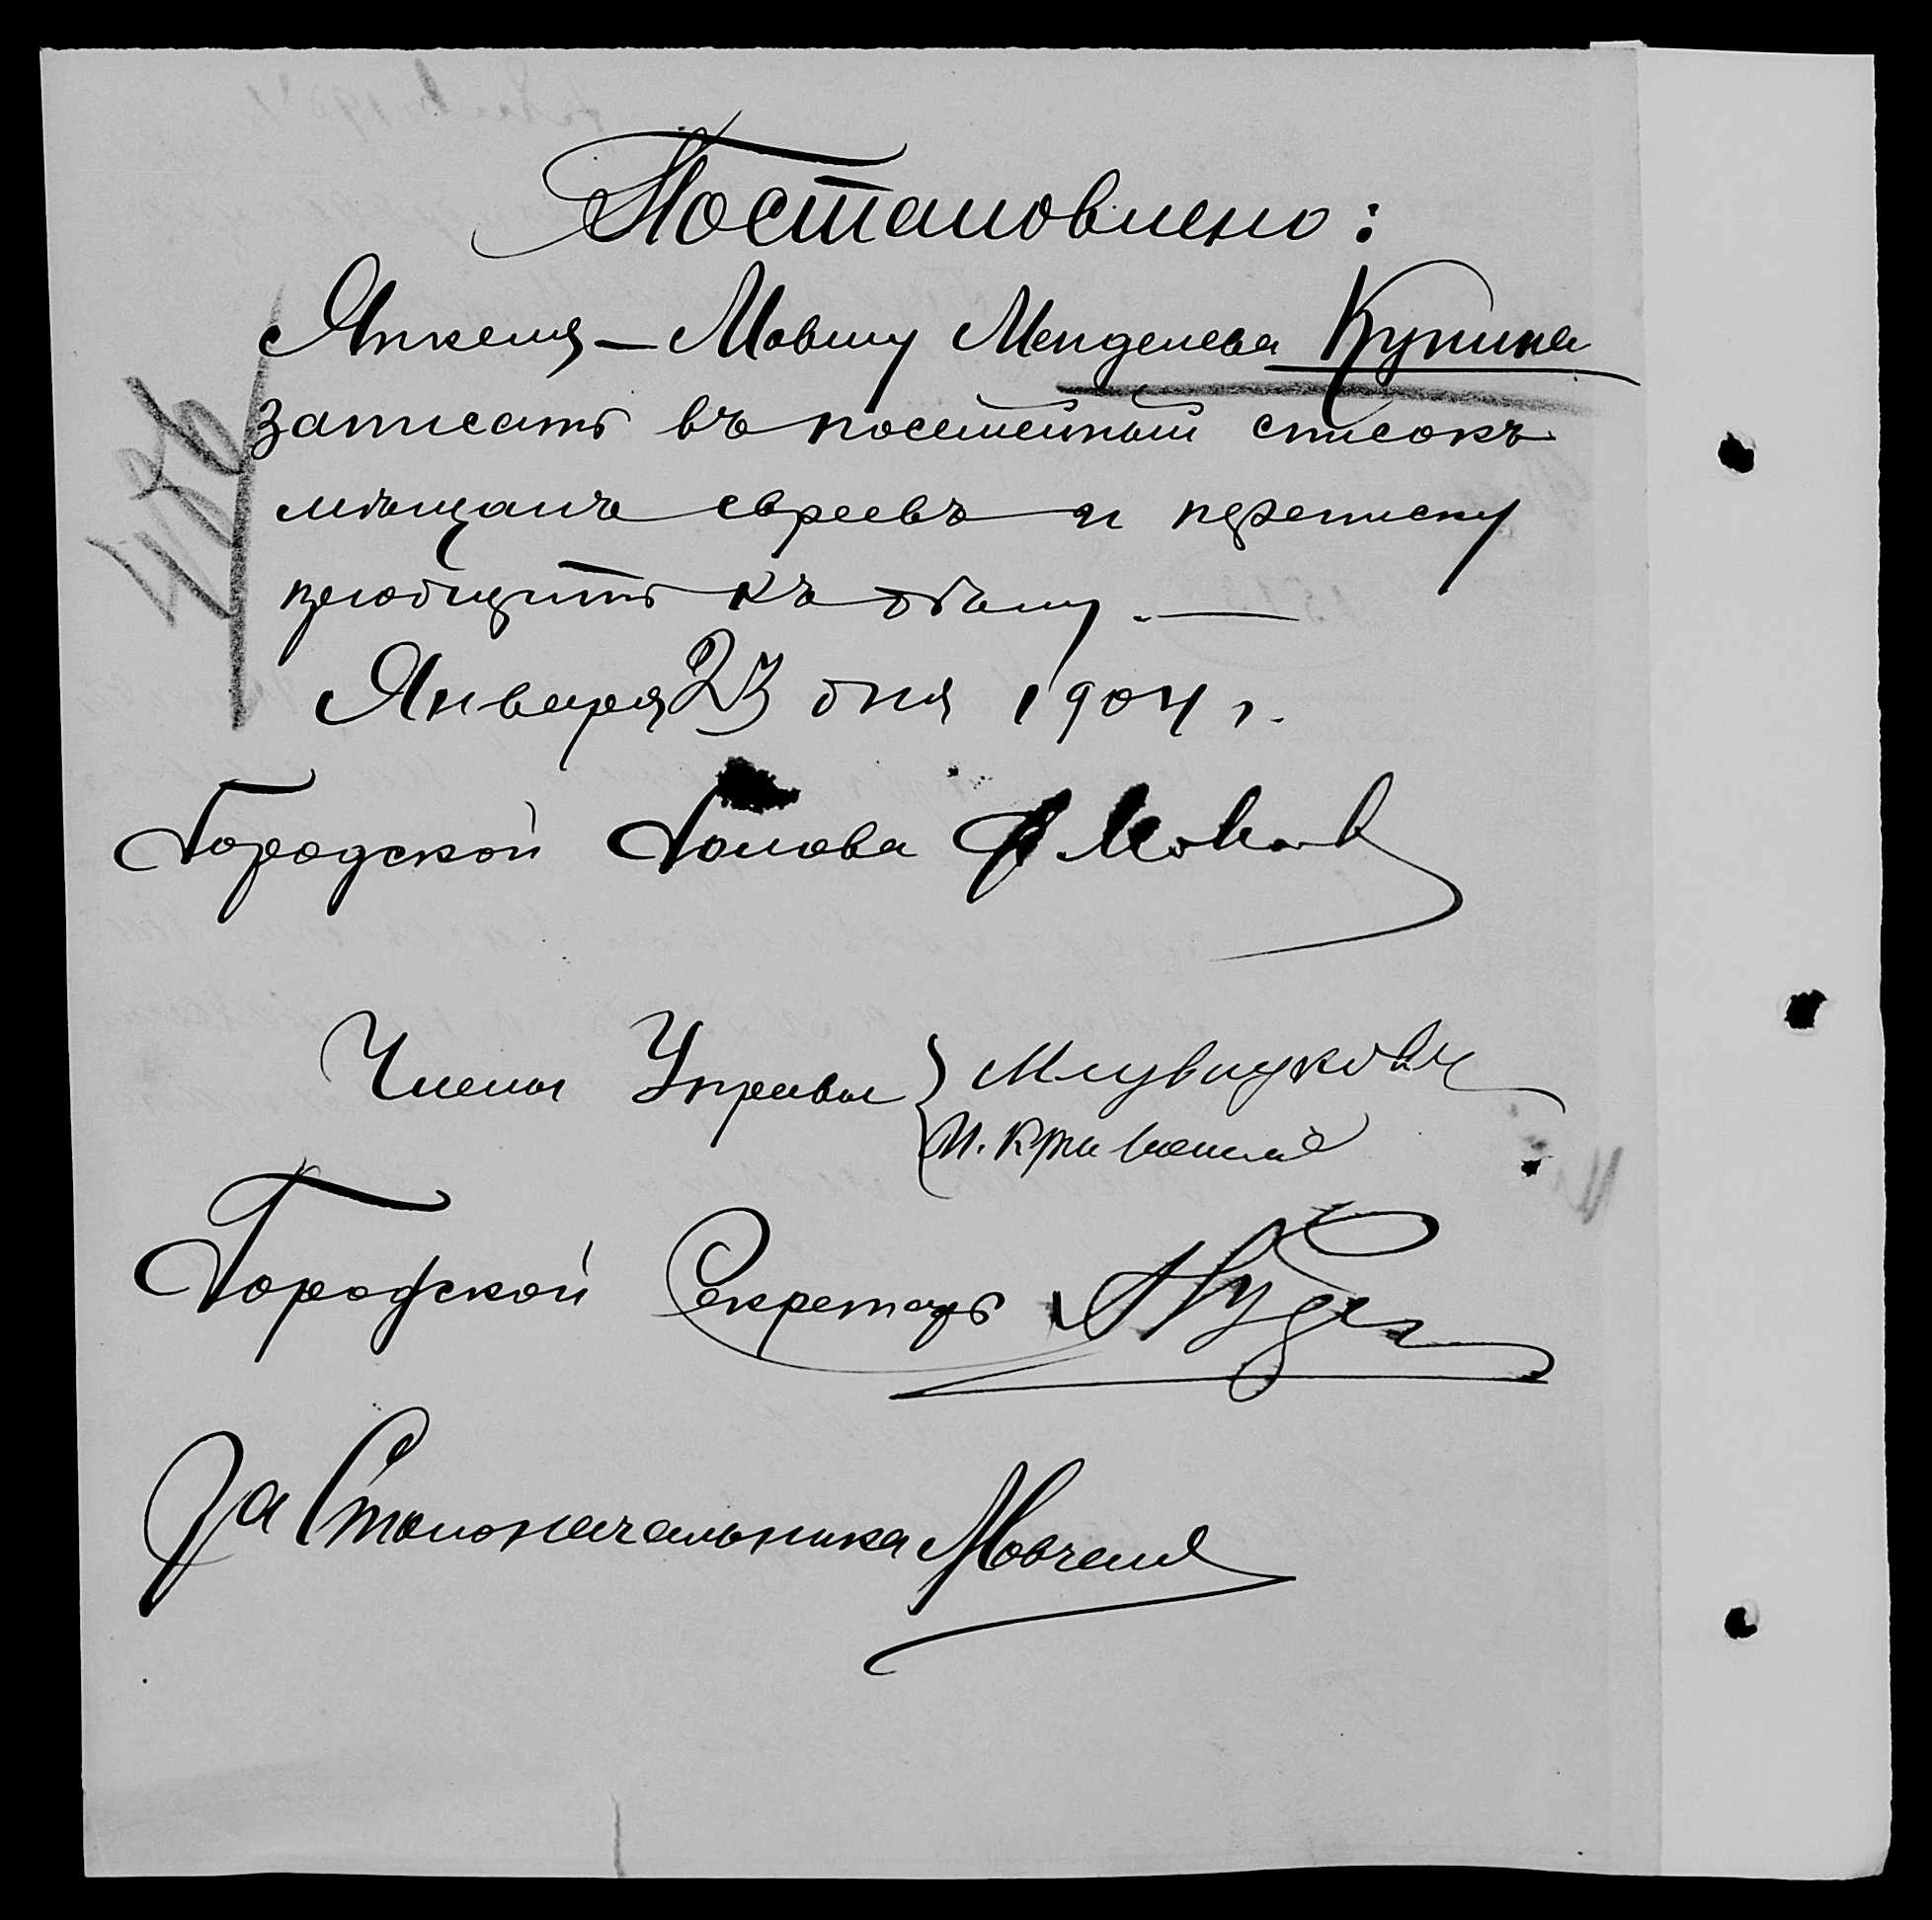 Постановлено:
Янкеля — Мовшу Менделева Купина
записать въ посемейный списокъ
мѣщанъ евреевъ и переписку
пріобщить къ дѣлу. —
Января 23 дня 1904 г.
Городской Голова
Члены Управы
И.
Городской Секретарь
За Столоначальника Мовчанъ